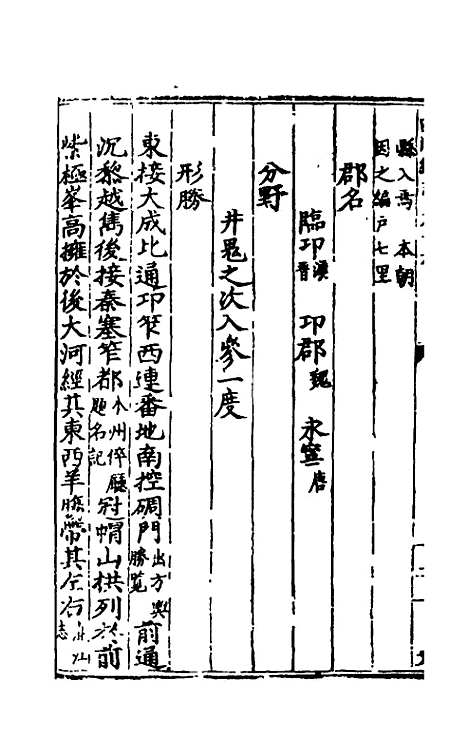 縣入焉 本朝
因之編戶七里
郡名
臨卭 漢晉 卭郡 魏 永寧 唐
分野
井鬼之次入參一度
形勝
東接大成比通卭笮西連番地南控碉門 出方輿勝覧 前通
沉黎越雋後接秦塞笮都 本州倅廳題名記 冠帽山拱列於前
紫極峯高擁於後大河經其東西羊 帶其左右 志